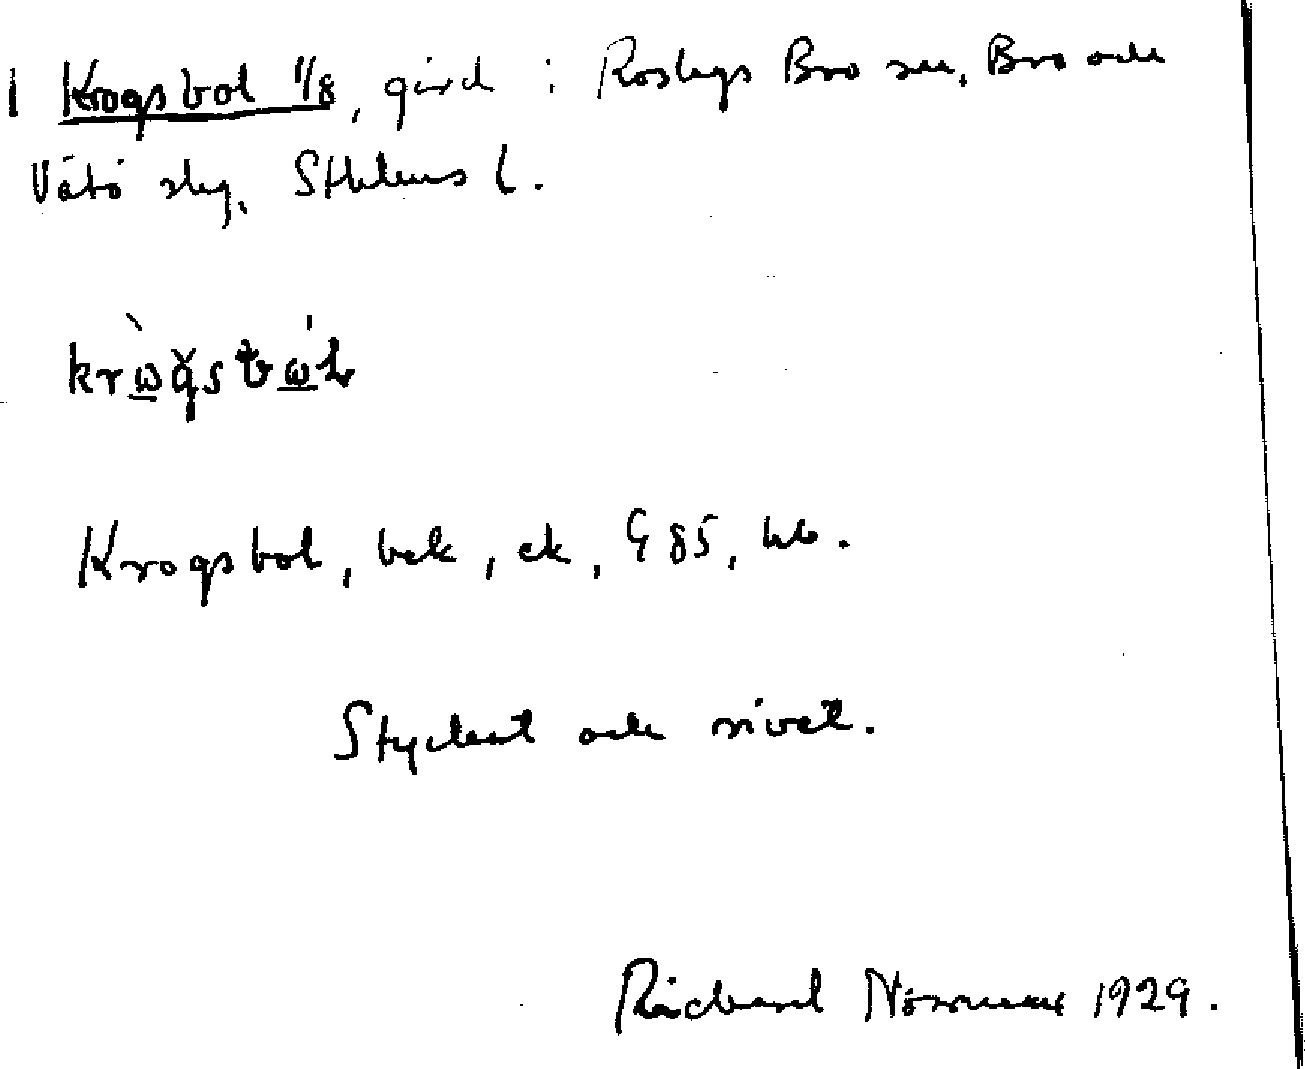 Krogsbol 1/8, gård i Roslags Bro sn, Bro och
Vätö slg, Sthlms l.
Krogsbol, bek, ek, G 85, hb.
Styckat och rivet.
Richard Norrman 1929.